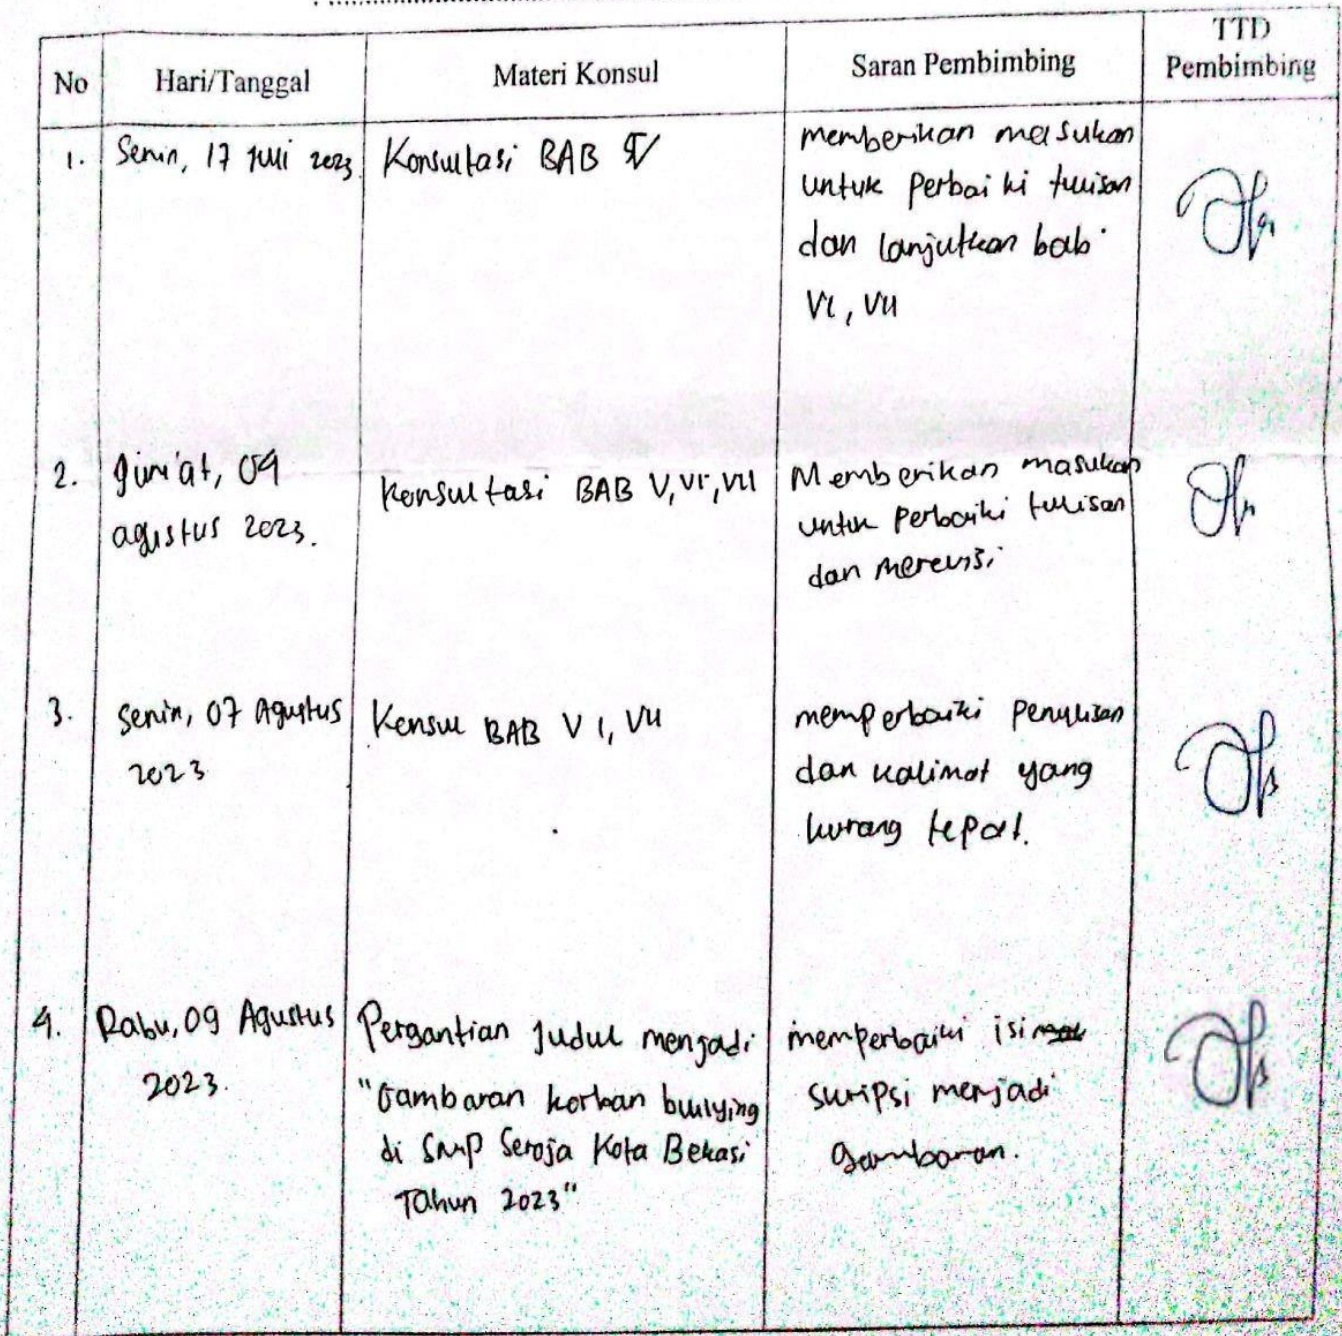 No
Hari/Tanggal
Materi Konsul
Saran Pembimbing
TTD
Pembimbing
1.
Senin, 17 Juli 2023
Konsultasi BAB V
memberikan masukan
untuk perbaiki tulisan
dan lanjutkan bab
VI, VII
2.
Jum'at, 04
agustus 2023.
Konsultasi BAB V, VI, VII
Memberikan masukan
untuk perbaiki tulisan
dan merevisi
3.
Senin, 07 Agustus
2023
Konsul BAB VI, VII
memperbaiki penulisan
dan kalimat yang
kurang tepat.
4.
Rabu, 09 Agustus
2023.
Pergantian Judul menjadi
"Gambaran korban bullying
di SMP Seroja Kota Bekasi
Tahun 2023"
memperbaiki isi
skripsi menjadi
gambaran.